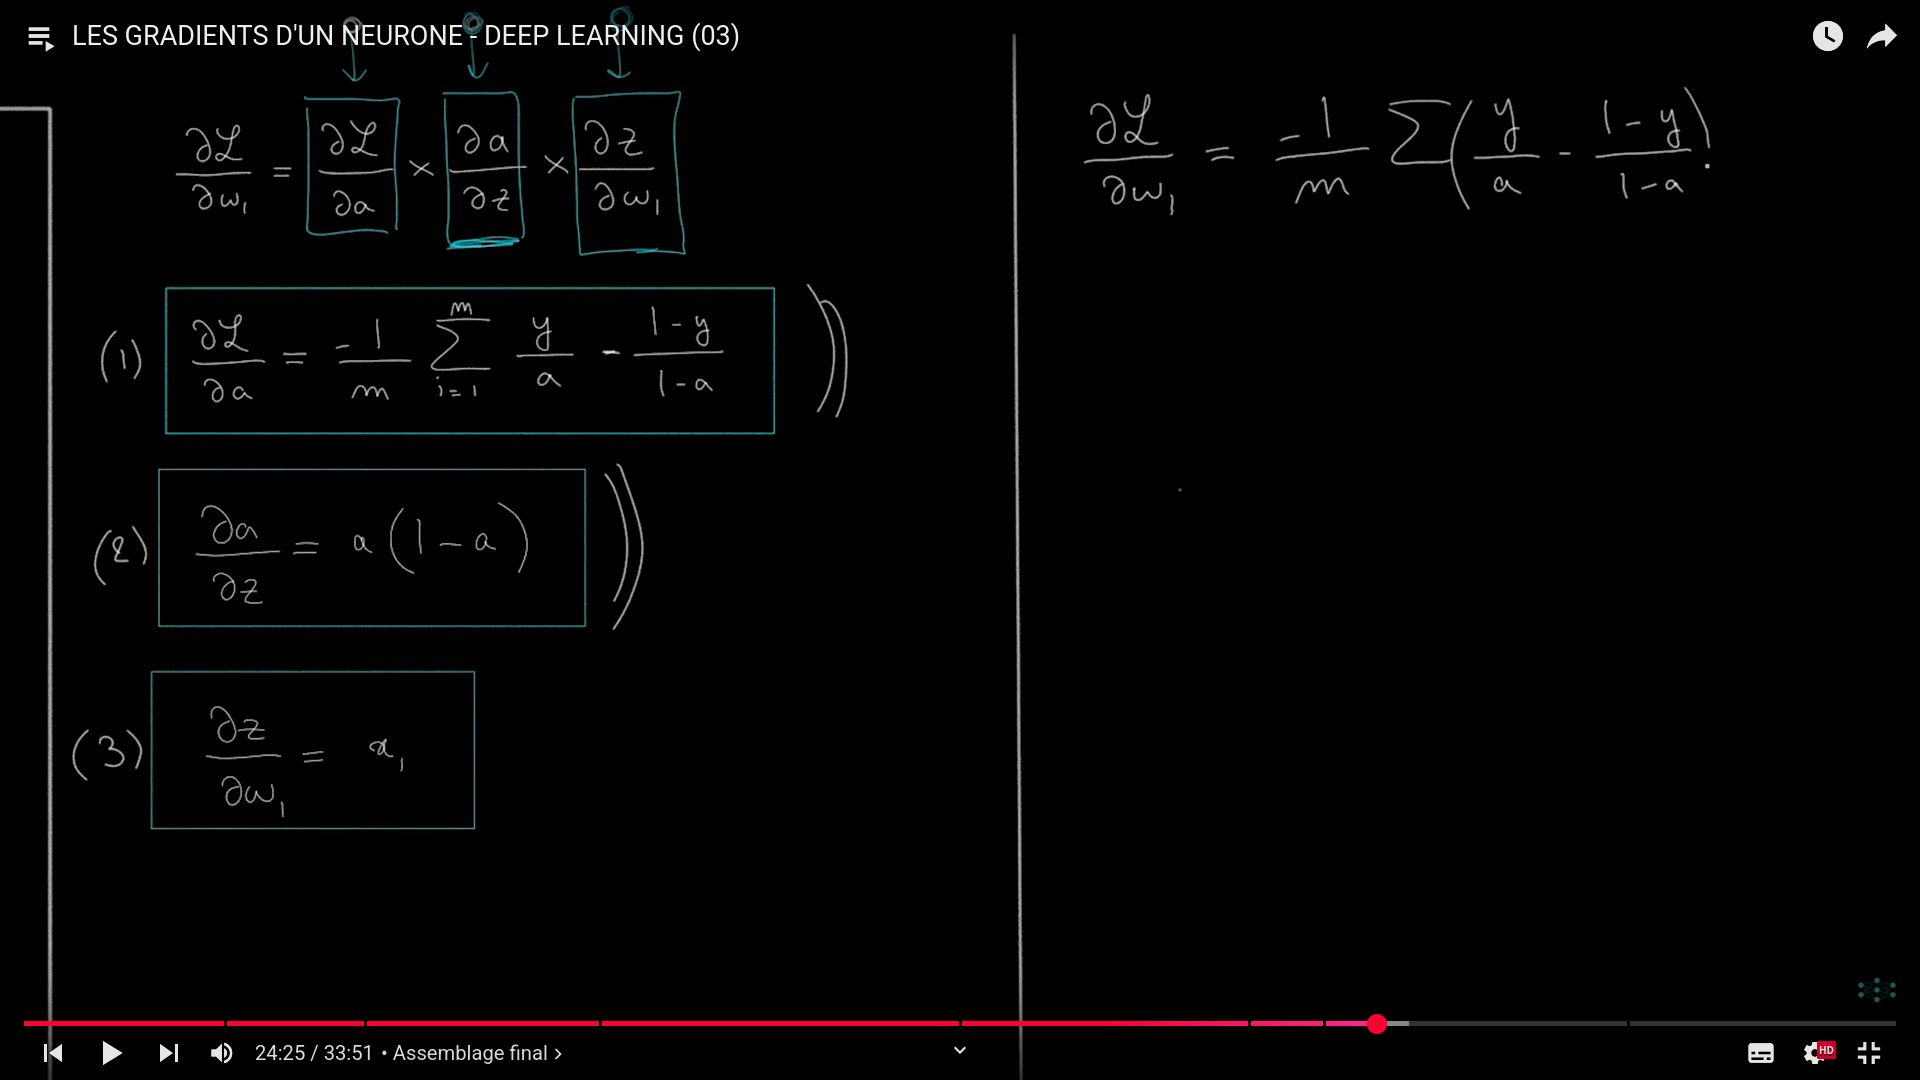 LES GRADIENTS D'UN NEURONE - DEEP LEARNING (03)
∂ℒ/∂w₁ = ∂ℒ/∂a × ∂a/∂z × ∂z/∂w₁
(1) ∂ℒ/∂a = -1/m ∑_{i=1}^{m} y/a - (1-y)/(1-a)
(2) ∂a/∂z = a(1-a)
(3) ∂z/∂w₁ = x₁
∂ℒ/∂w₁ = -1/m ∑(y/a - (1-y)/(1-a))·
24:25 / 33:51 • Assemblage final ›
HD